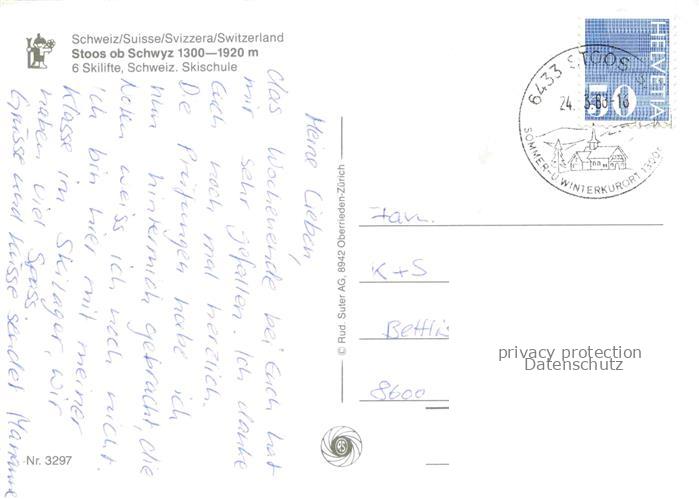 Schweiz/Suisse/Svizzera/Switzerland
Stoos ob Schwyz 1300—1920 m
6 Skilifte, Schweiz. Skischule
Meine Lieben,
das Wochenende bei Euch hat
mir sehr gefallen. Ich danke
Euch noch mal herzlich.
Die Prüfungen habe ich
nun hintermich gebracht, die
Noten weiss ich noch nicht.
Ich bin hier mit meiner
Klasse im Skilager, wir
haben viel Spass.
Grüsse und Küsse sendet Marianne
Nr. 3297
© Rud. Suter AG, 8942 Oberrieden-Zürich
HELVETIA
50
6433 STOOS
24. 3.83-18
SOMMER-U. WINTERKURORT 1300m
Fam.
K+S
Bettli
8600
privacy protection
Datenschutz